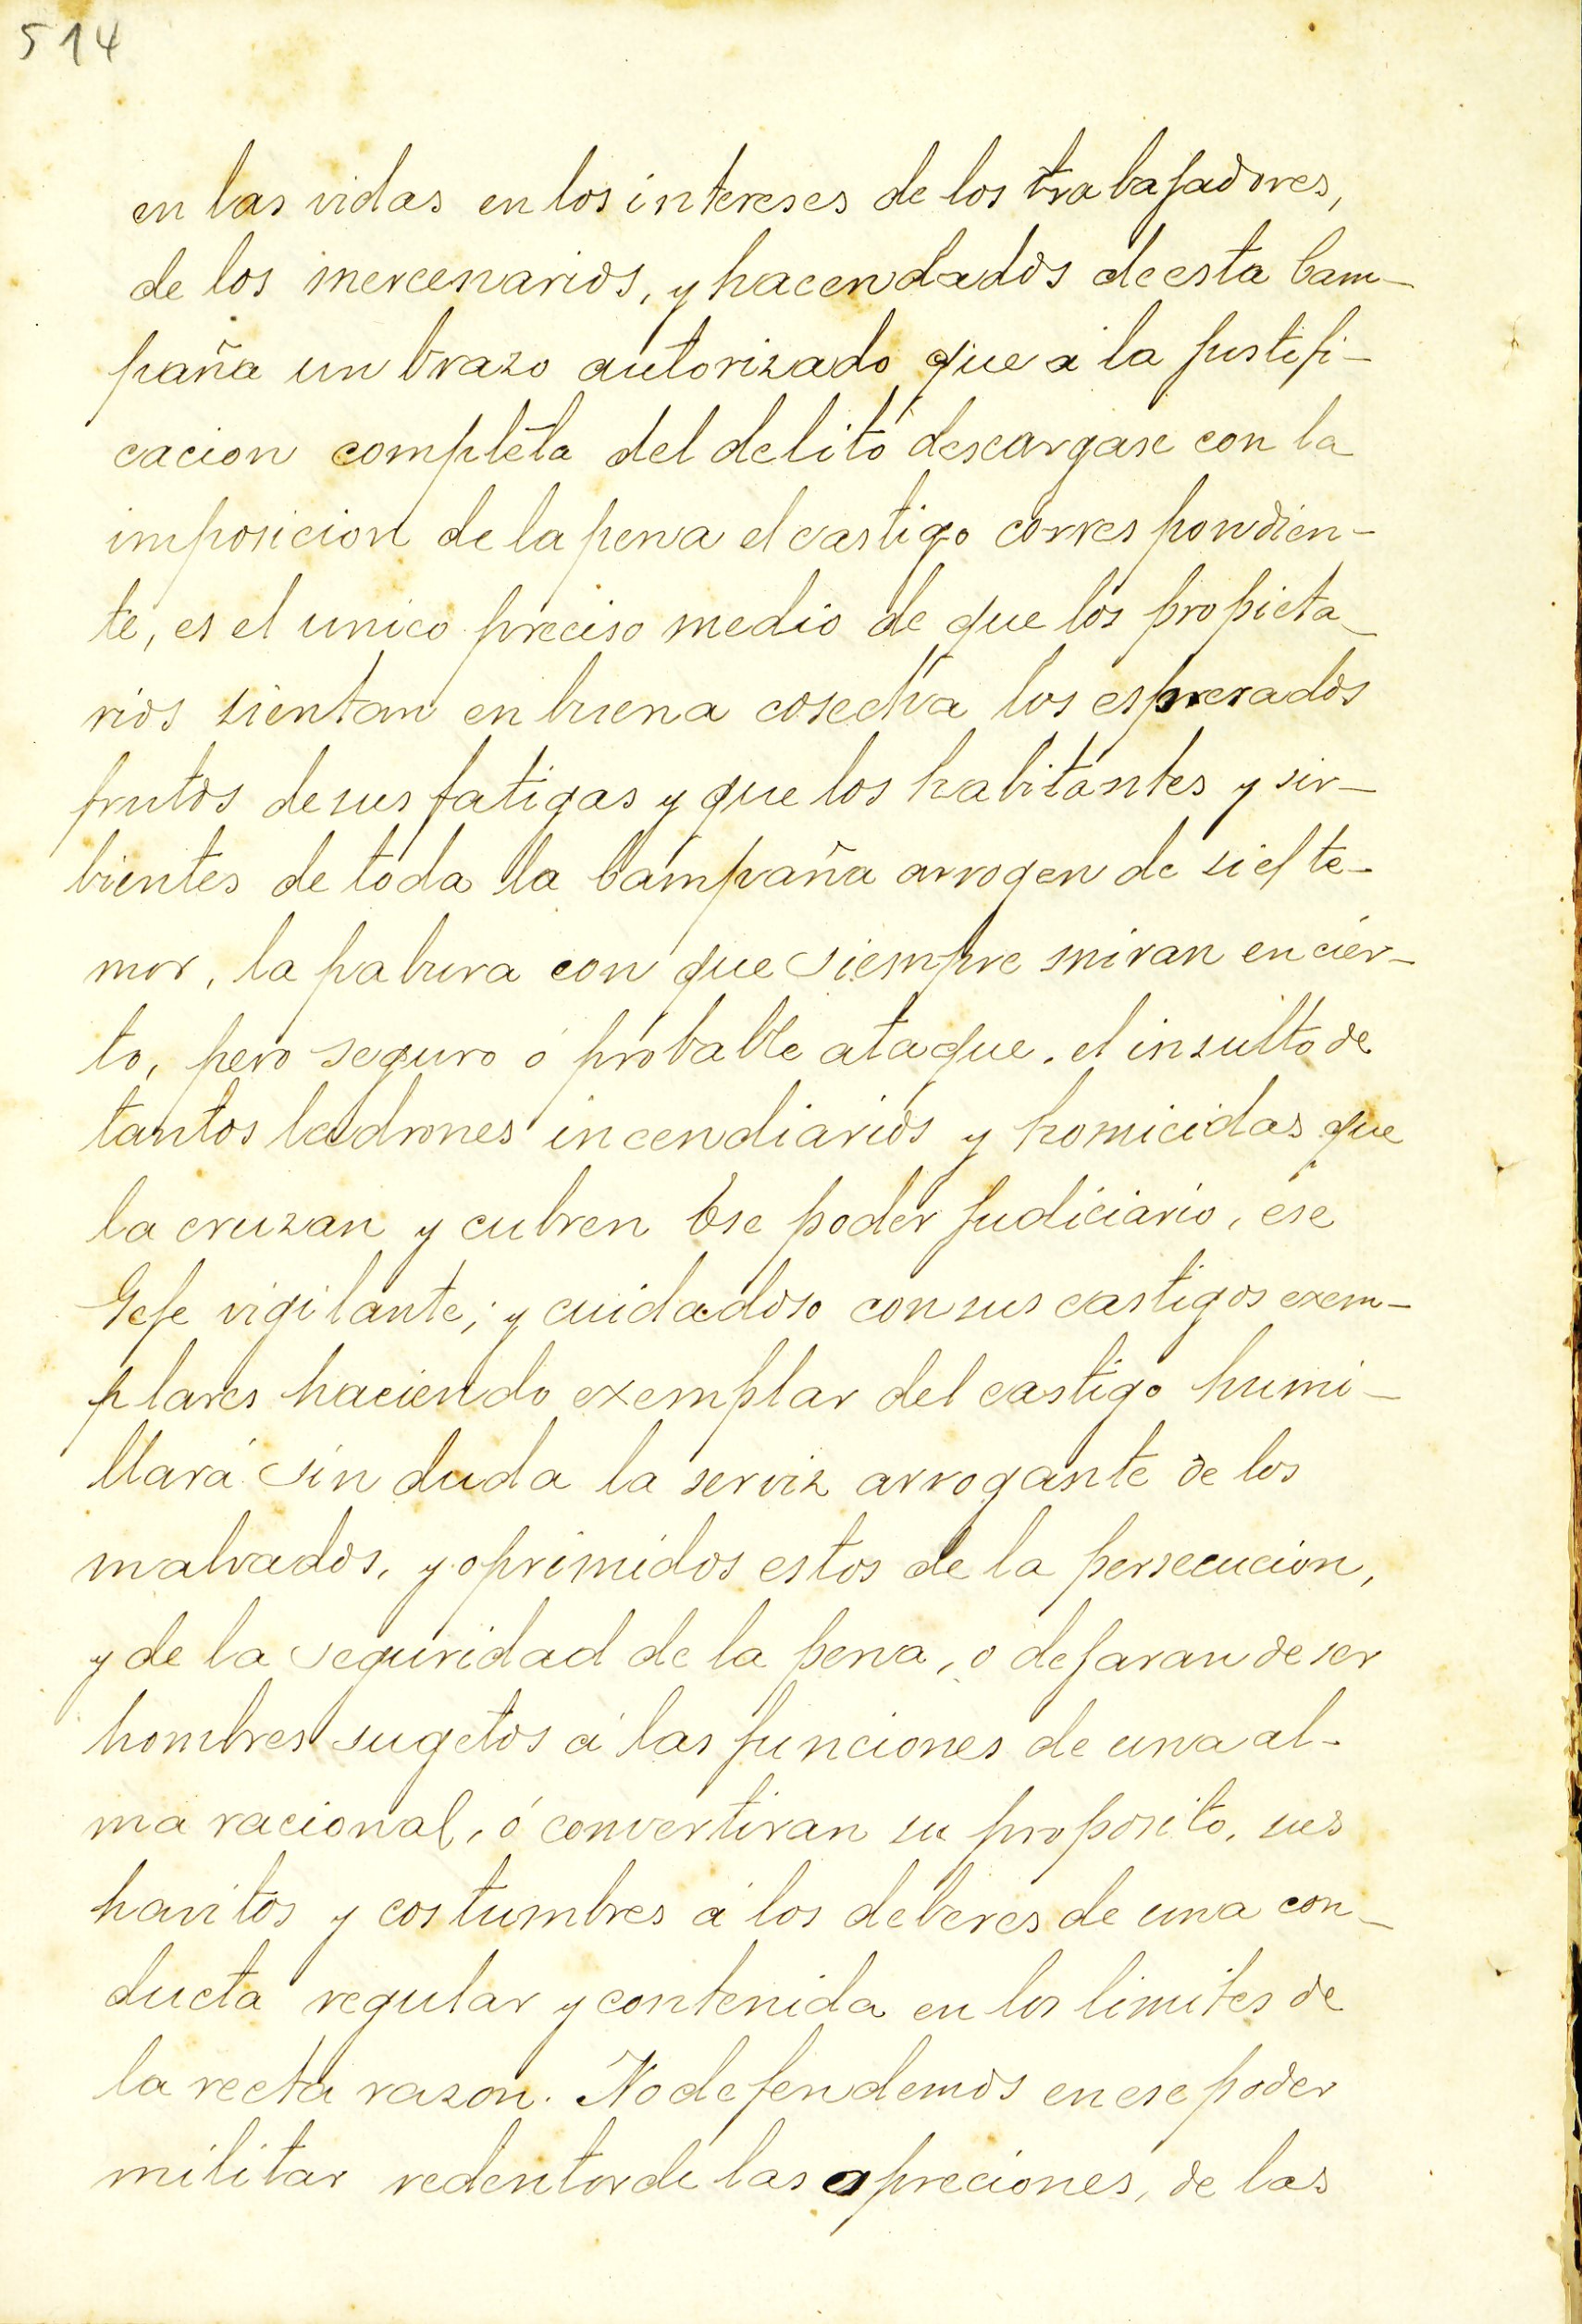 514
en las vidas en los intereses de los trabajadores,
de los mercenarios, y hacendados de esta Cam-
paña un brazo autorizado que a la justifi-
cacion completa del delito descargase con la
imposicion de la pena el castigo correspondien-
te, es el unico preciso medio de que los propieta-
rios sientan en buena cosecha los esperados
frutos de sus fatigas y que los habitantes y sir-
bientes de toda la Campaña arrogen de si el te-
mor, la pabura con que siempre miran en cier-
to, pero seguro ó probable ataque. el insulto de
tantos ladrones incendiarios y homicidas que
la cruzan y cubren Ese poder judiciario, ese
Gefe vigilante; y cuidadoso con sus castigos exem-
plares haciendo exemplar del castigo humi-
llará sin duda la serviz arrogante de los
malvados, y oprimidos estos de la persecucion,
y de la seguridad de la pena, o dejaran de ser
hombres sugetos á las funciones de una al-
ma racional, ó convertiran su proposito, sus
havitos y costumbres á los deberes de una con-
ducta regular y contenida en los limites de
la recta razon. No defendemos en ese poder
militar redentor de las opreciones, de las